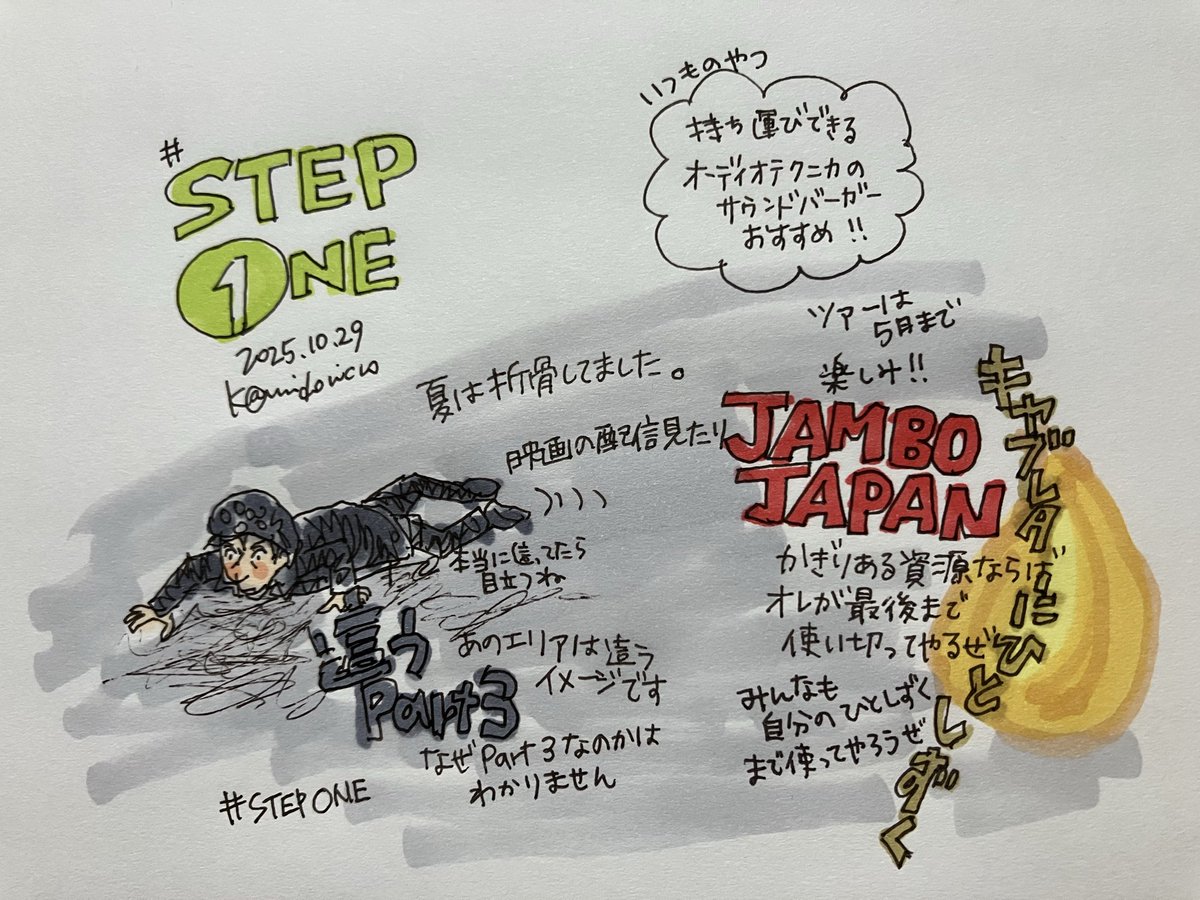 #STEP
ONE
2025.10.29
いつものやつ
持ち運びできる
オーディオテクニカの
サウンドバーガー
おすすめ!!
ツアーは
5月まで
楽しみ!!
夏は折骨してました。
映画の配信見たり
JAMBO
JAPAN
キャブレターにひとしずく
かぎりある資源ならば
オレが最後まで
使い切ってやるぜ
みんなも
自分のひとしずく
まで使ってやろうぜ
本当に這ってたら
目立つね
這う
Part3
あのエリアは這う
イメージです
なぜPart3なのかは
わかりません
#STEPONE